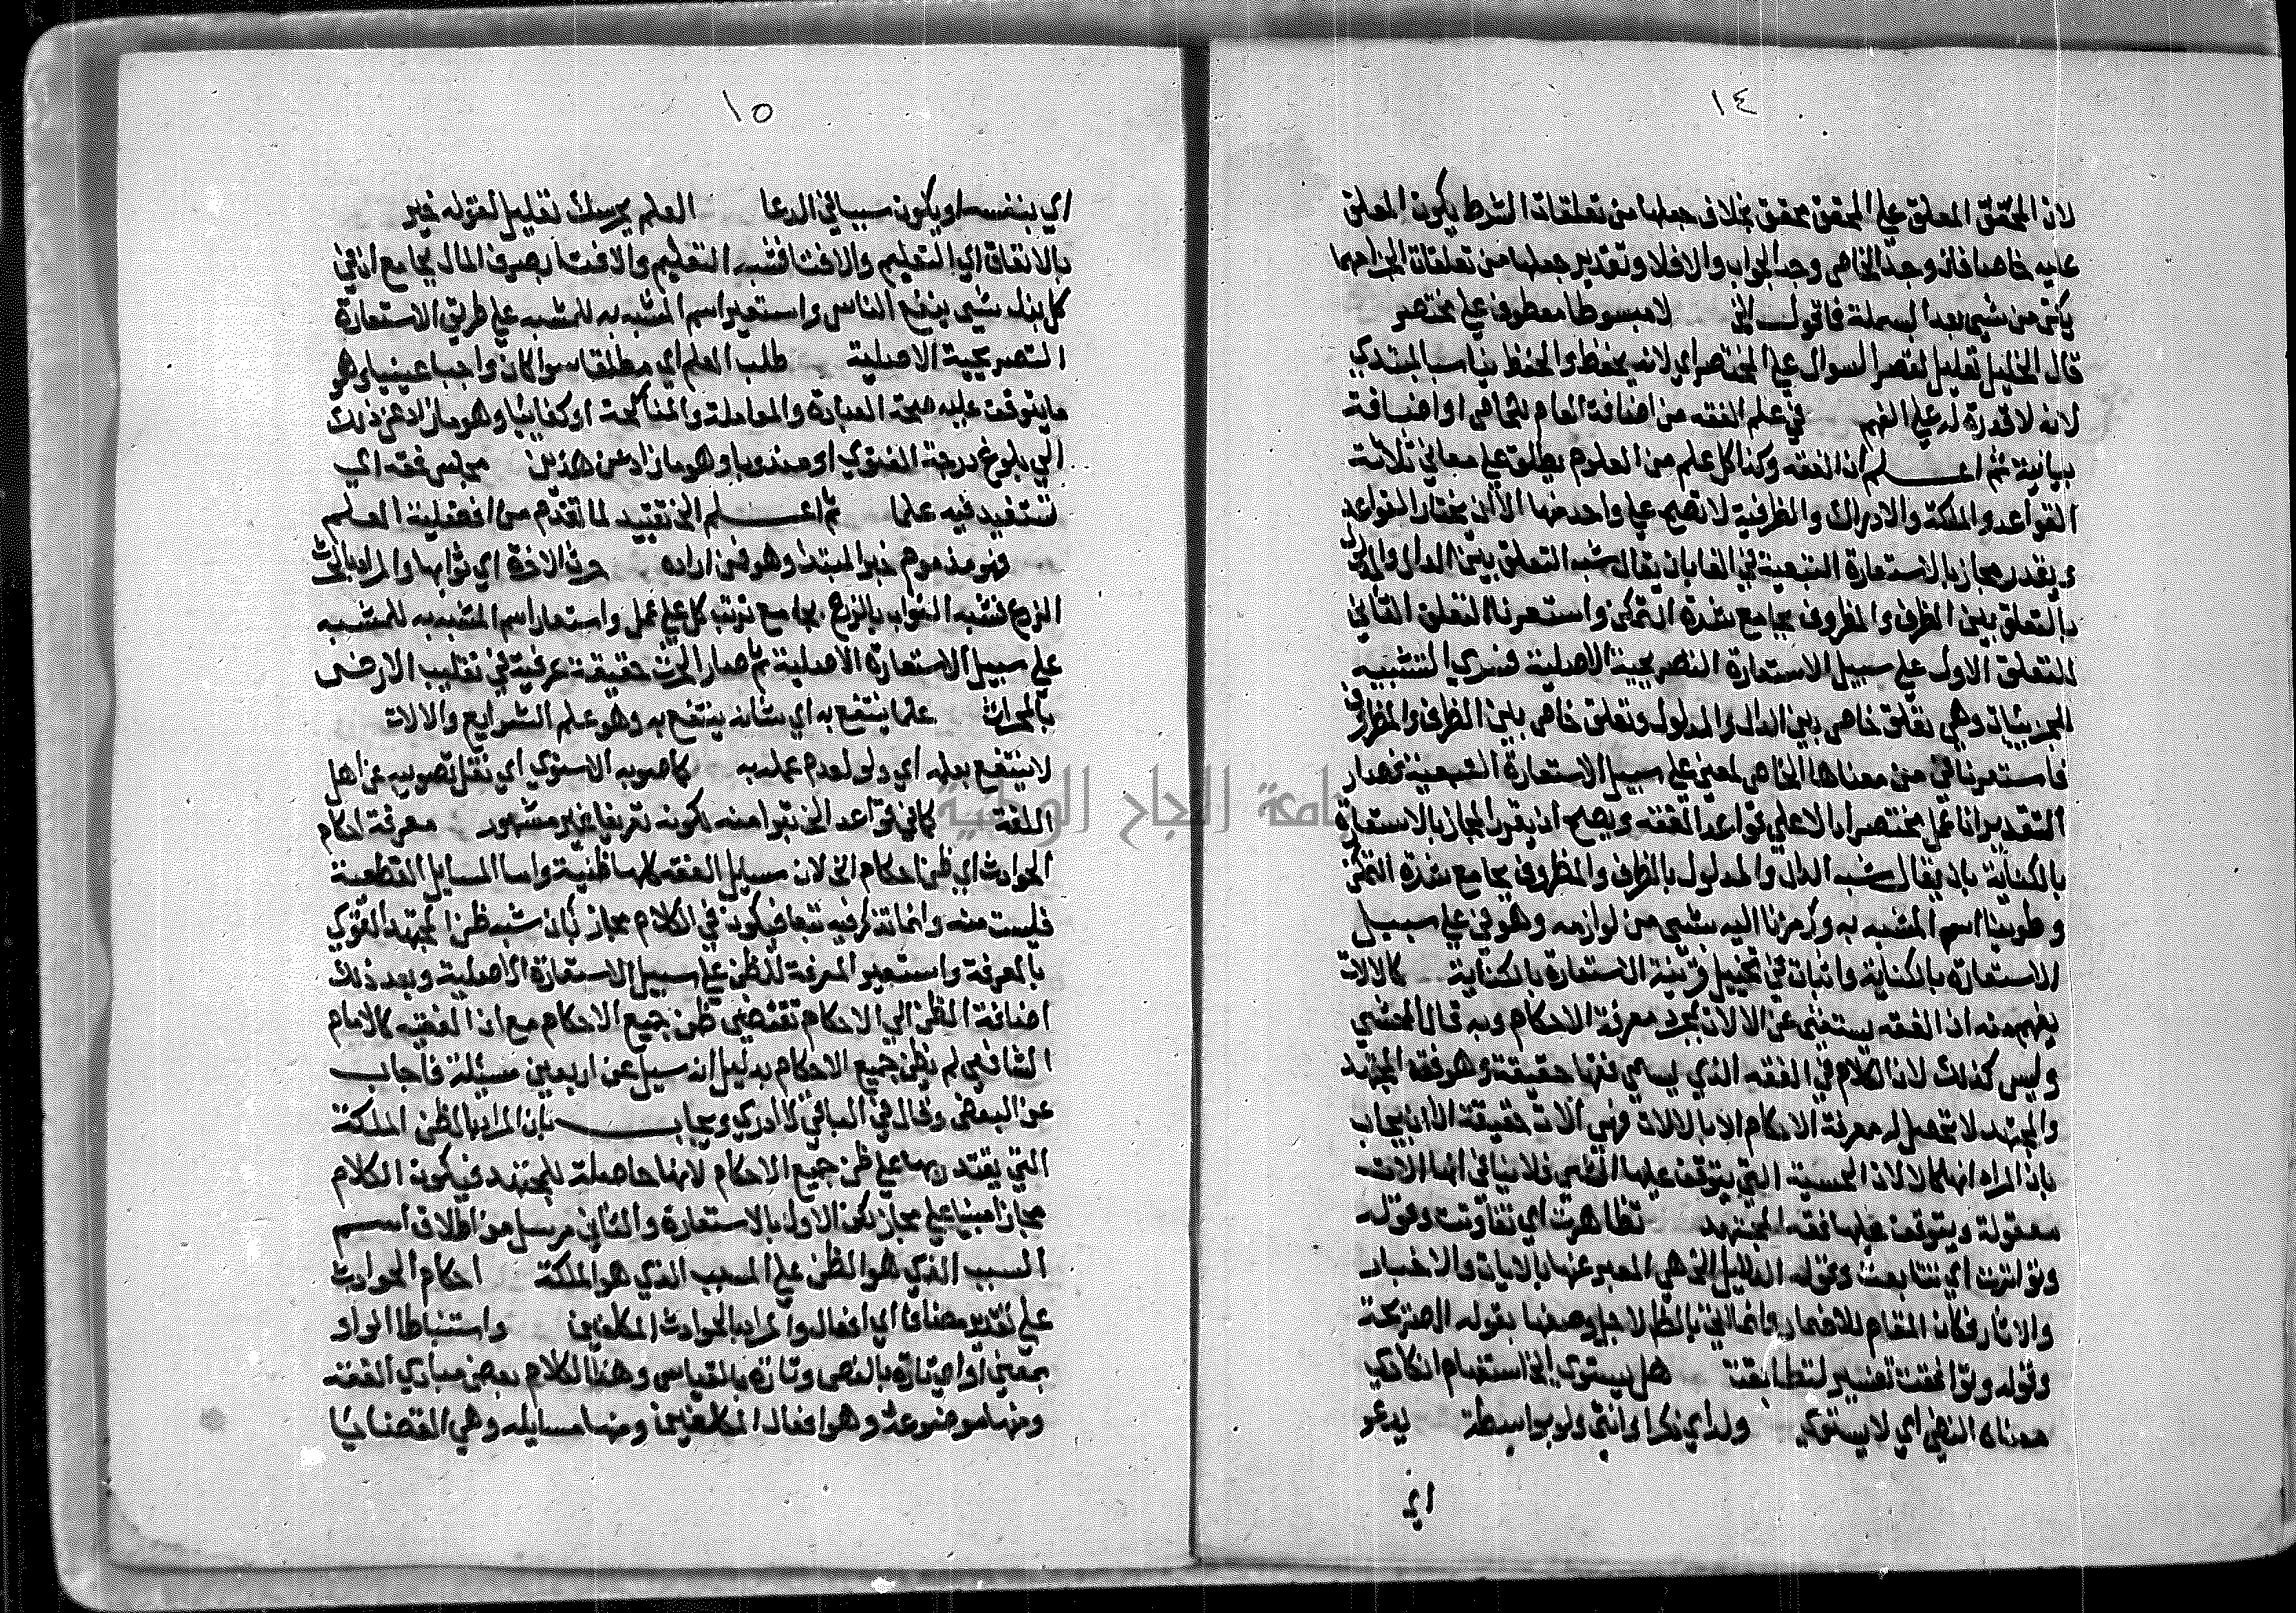 ١٤
لان المحقق المعلق على المحقق محقق بخلاف جعلها من تعلقات الشرط يكون المعلق
عليه خاصا فان وجد الخاص وجد الجواب والا فلا وتقدير جعلها من تعلقات الجزا مهما
يكن من شيى بعد البسملة فاقول الخ لا مبسوطا معطوف على مختصر
قال الخليل تعليل لقصر السوال على المختصر اي لانه يحفظ والحفظ يناسب المبتدي
لانه لا قدرة له على الفهم في علم الفقه من اضافة العام للخاص او اضافة
بيانية ثم اعلم ان الفقه وكذا كل علم من العلوم يطلق على معاني ثلاثة
القواعد والملكة والادراك والظرفية لا تصح على واحد منها الا ان يختار القواعد
ويقدر مجاز بالاستعارة التبعية في الفا بان يقال شبه التعلق بين الدال والمدلول
بالتعلق بين الظرف والمظروف بجامع شدة التمكن واستعرنا التعلق الثاني
للتعلق الاول على سبيل الاستعارة التصريحية الاصلية فسري التشبيه
للجزيئات وهي تعلق خاص بين الدال والمدلول وتعلق خاص بين الظرف والمظروف
فاستعرنا في من معناها الخاص لمعنى على سبيل الاستعارة التبعية فصار
التقدير انا عمل مختصرا دالا على قواعد الفقه ويصح ان يقرر المجاز بالاستعارة
بالكناية بان يقال شبه الدال والمدلول بالظرف والمظروف بجامع شدة التمكن
وطوينا اسم المشبه به ورمزنا اليه بشيى من لوازمه وهو في على سبيل
الاستعارة بالكناية واثبات في تخييل قرينة الاستعارة بالكناية كالالات
يفهم منه ان الفقه يستغنى عن الالات بمجرد معرفة الاحكام وبه قال المحشي
وليس كذلك لان الكلام في الفقه الذي يسمي فقها حقيقة وهو فقه المجتهد
والمجتهد لا تحصل له معرفة الاحكام الا بالالات فهي الات حقيقة الا ان يجاب
بان المراد انها كالالات الحسية التي يتوقف عليها الشيى فلا ينافي انها الات
معقولة ويتوقف عليها فقه المجتهد تظاهرت اي تفاوتت وقوله
وتواترت اي تتابعت وقوله الدلايل الخ هي المعبر عنها بالايات والاخبار
والاثار فكان المقام للاضمار وانما اتي بالظاهر لاجل وصفها بقوله الصريحة
وقوله وتوافقت تفسير لتطابقت هل يستوي الخ استفهام انكاري
معناه النفي اي لا يستوي ولد اي ذكرا وانثى ولو بواسطة يدعو
اي
١٥
اي بنفسه او يكون سببا في الدعا العلم يحرسك تعليل لقوله خير
بالانفاق اي التعليم والافتا فشبه التعليم والافتا بصرف المال بجامع ان في
كل بذل شيى ينفع الناس واستعير اسم المشبه به للمشبه على طريق الاستعارة
التصريحية الاصلية طلب العلم اي مطلقا سوا كان واجبا عينيا وهو
ما يتوقف عليه صحة العبادة والمعاملة والمناكحة او كفائيا وهو ما زاد عن ذلك
الي بلوغ درجة الفتوي او مندوبا وهو ما زاد عن هذين مجلس فقه اي
تستفيد فيه علما ثم اعلم الخ تقييد لما تقدم من افضلية العلم
فهو مذموم خبر المبتدا وهو فمن اراده حرث الاخرة اي ثوابها والمراد بالحرث
الزرع فشبه الثواب بالزرع بجامع ترتب كل على عمل واستعار اسم المشبه به للمشبه
على سبيل الاستعارة الاصلية ثم صار الحرث حقيقة عرفية في تقليب الارض
بالمحراث علما ينتفع به اي شانه ينتفع به وهو علم الشرايع والالات
لا ينتفع بعلمه اي ولو لعدم عمله به كما صوبه الاسنوي اي نقل تصويبه عن اهل
اللغة كما في قواعد الخ تبرا منه لكونه تعريفا غير مشهور معرفة احكام
الحوادث اي ظن احكام الخ لان مسايل الفقه كلها ظنية واما المسايل القطعية
فليست منه وانما تذكر فيه تبعا فيكون في الكلام مجاز بان شبه ظن المجتهد القوي
بالمعرفة واستعير المعرفة للظن على سبيل الاستعارة الاصلية وبعد ذلك
اضافة الظن الي الاحكام تقتضي ظن جميع الاحكام مع ان الفقيه كالامام
الشافعي لم يظن جميع الاحكام بدليل انه سيل عن اربعين مسئلة فاجاب
عن البعض وقال في الباقي لا ادري ويجاب بان المراد بالظن الملكة
التي يقتدر بها على ظن جميع الاحكام لانها حاصلة للمجتهد فيكون الكلام
مجازا مبنيا على مجاز لكن الاول بالاستعارة والثاني مرسل من اطلاق اسم
السبب الذي هو الظن على المسبب الذي هو الملكة احكام الحوادث
على تقدير مضاف اي افعال والمراد بالحوادث المكلفين واستنباطا الواو
بمعني او اي تارة بالنص وتارة بالقياس وهذا الكلام بعض مبادي الفقه
ومنها موضوعه وهو افعال المكلفين ومنها مسايله وهي القضايا
جامعة النجاح الوطنية